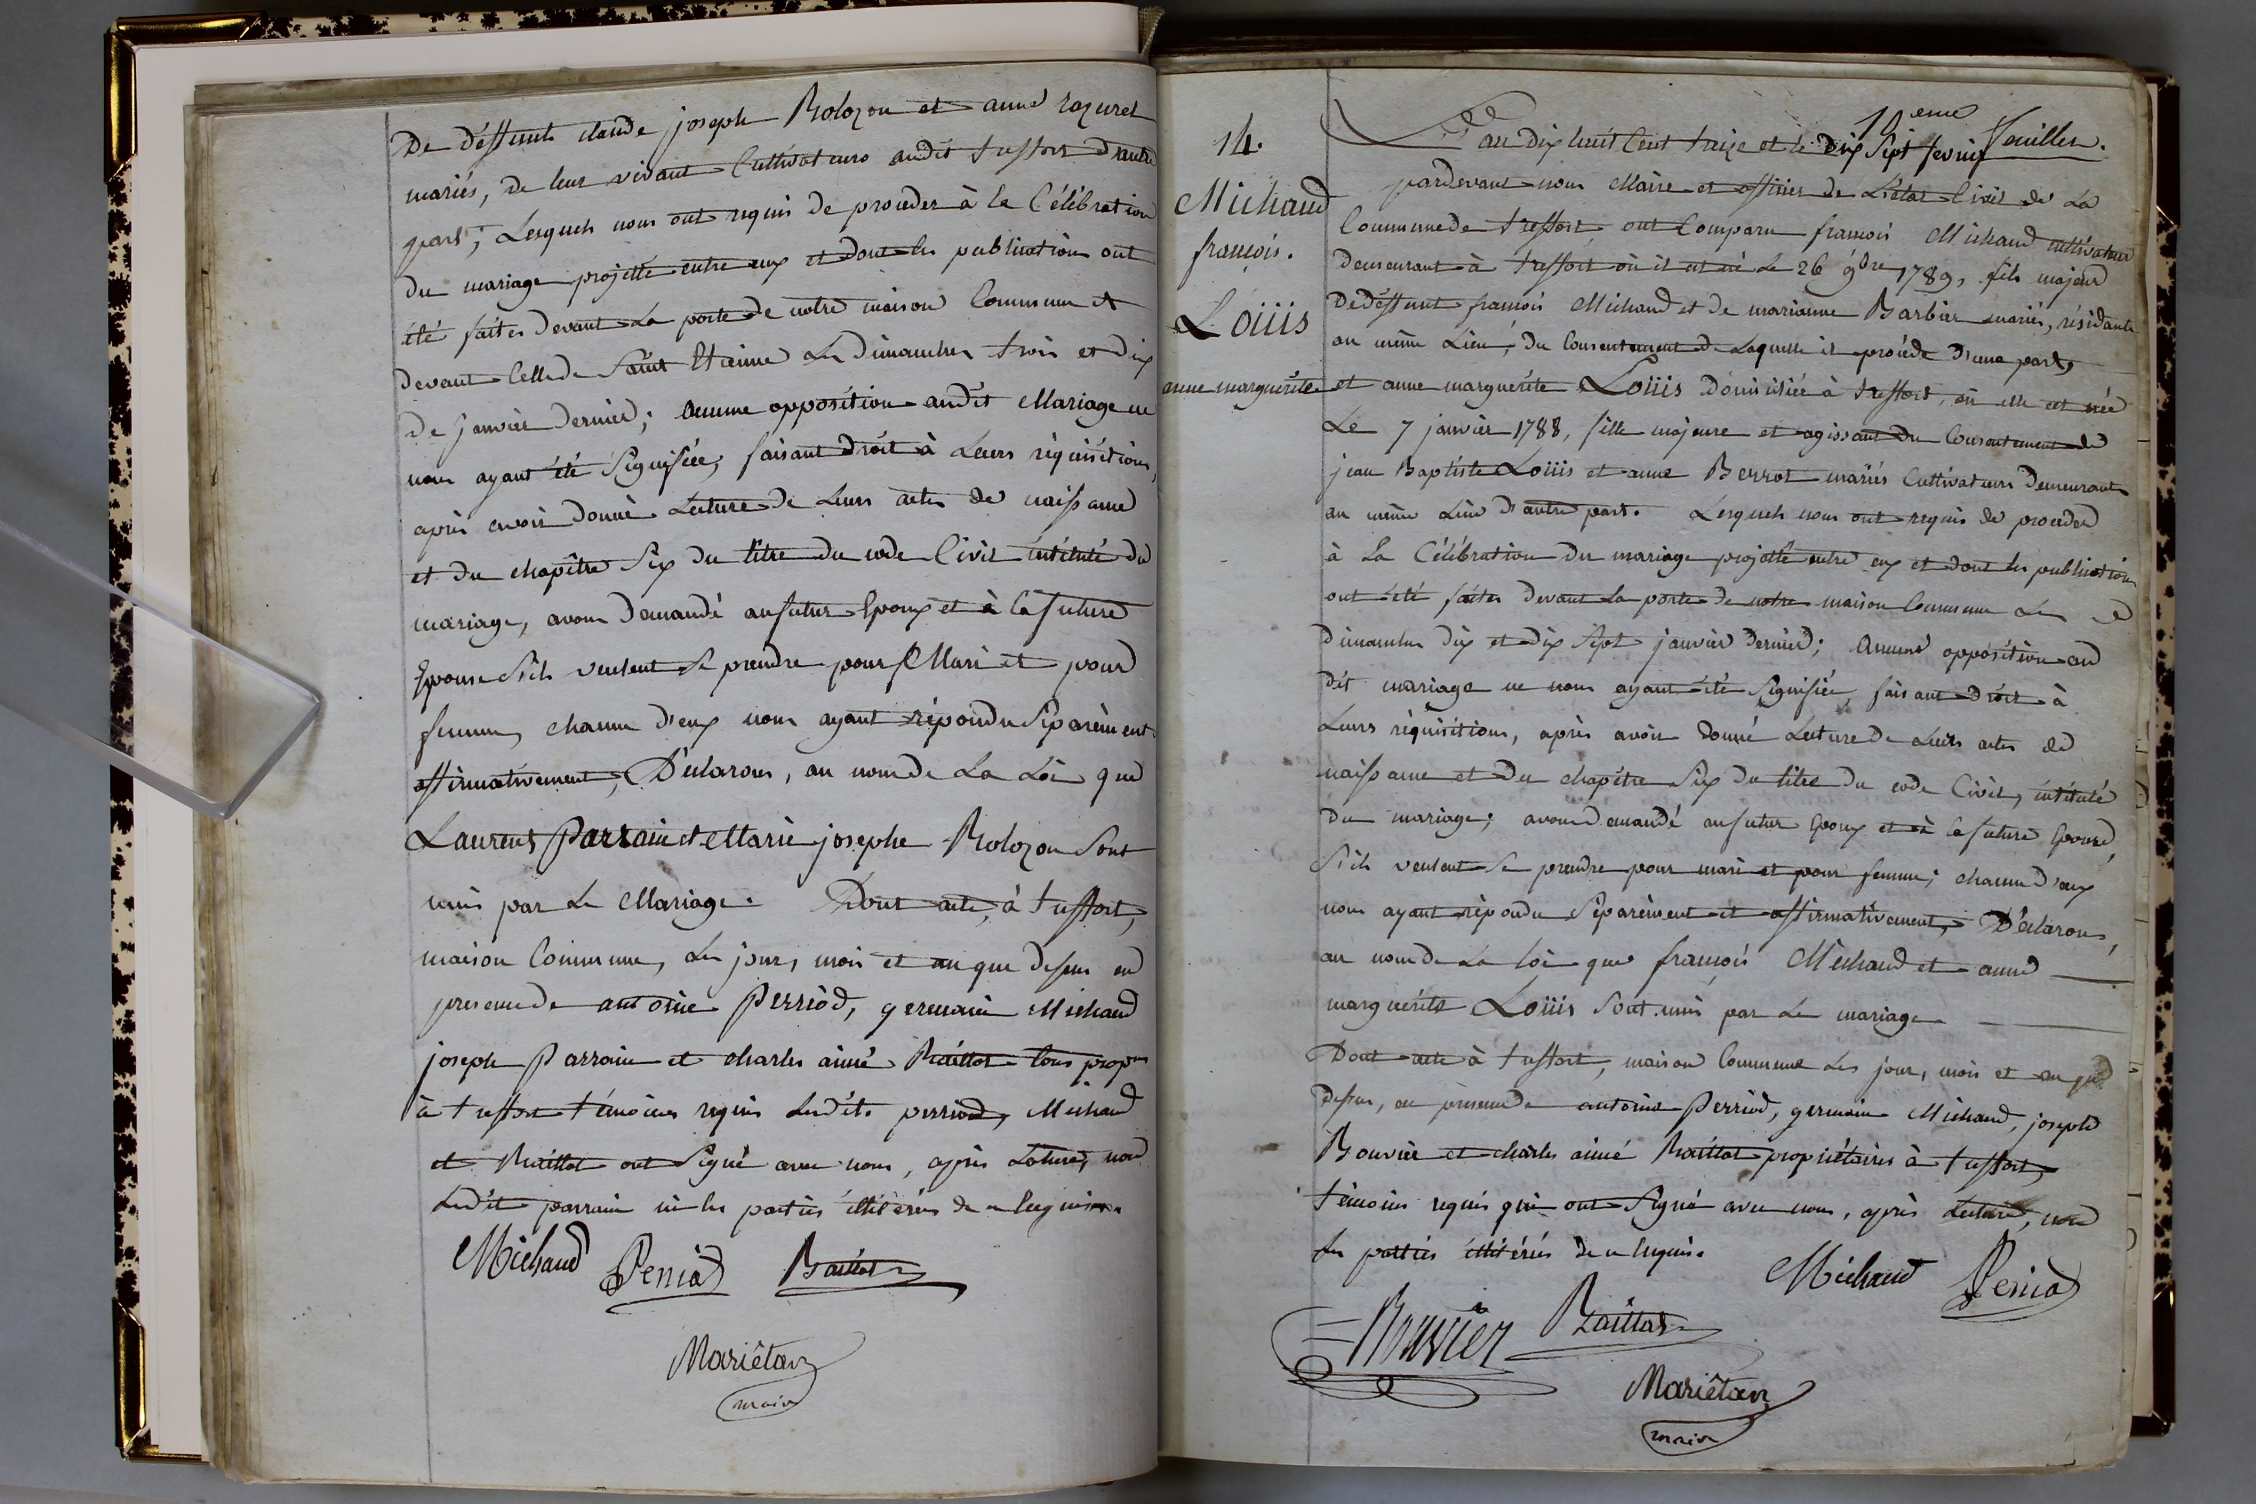 De déffunts claude joseph Bolozon et anne rozuret
mariés, de leur vivant Cultivateurs audit treffort d'autre
part; Lesquels nous ont requis de procéder à la Célébration
du mariage projetté entre eux et dont les publications ont
été faites devant La porte de notre maison Commune et
devant Celle de Saint Etienne Les Dimanches trois et dix
de Janvier dernier; Aucune opposition audit Mariage ne
nous ayant été Signifiée, faisant droit à Leurs réquisitions,
après avoir donné Lecture de Leurs actes de naissance
et du chapître Six du titre du code Civil intitulé du
mariage, avons demandé au futur Epoux et à la future
Epouse S'ils veulent Se prendre pour Mari et pour
femme, chacun d'eux nous ayant répondu Séparément
affirmativement, Déclarons, au nom de La Loi que
Laurent Parrain et Marie josephe Bolozon Sont
unis par Le Mariage. Dont acte, à treffort,
maison Commune, Les jour, mois et an que dessus en
presence de antoine Perriod, germain Michaud
joseph Parrain et charles aimé Raittot tous propres
à treffort témoins requis Lesdits perriod, Michaud
et Raittot ont Signé avec nous, après Lecture, non
Ledit parrain ni les parties illitérées de ce Enquises.
Michaud Perriod Raittot
Mariêtan
maire
10eme feuillet.
14.
Michaud
françois.
Loüis
anne marguérite
L'an dix huit Cent treize et le Dix Sept fevrier
pardevant nous Maire et officier de L'état Civil de La
Commune de treffort ont Comparu françois Michaud cultivateur
demeurant à treffort où il est né Le 26 9bre 1789, fils majeur
De déffunt françois Michaud et de marianne Barbier mariés, résidante
au même Lieu, du Consentement de Laquelle il procéde D'une part,
et anne marguérite Loüis Domiciliée à treffort, où elle est née
Le 7 janvier 1788, fille majeure et agissant du Consentement de
jean Baptiste Loüis et anne Berrot mariés Cultivateurs Demeurants
au même Lieu d'autre part. Lesquels nous ont requis de procéder
à La Célébration du mariage projetté entre eux et dont les publications
ont été faites devant La porte de notre maison Commune Les
Dimanches dix et dix Sept janvier Dernier; Aucune opposition au
dit mariage ne nous ayant été Signifiée, faisant droit à
Leurs réquisitions, après avoir donné Lecture de Leurs actes de
naissance et du chapître Six du titre du code Civil, intitulé
Du mariage; avons demandé au futur Epoux et à la future Epouse,
S'ils veulent Se prendre pour mari et pour femme; chacun d'eux
nous ayant répondu Séparément et affirmativement, Déclarons,
au nom de La loi que françois Michaud et anne
marguérite Loüis Sont unis par Le mariage
Dont acte à treffort, maison Commune Les jour, mois et an que
dessus, en présence de antoine Perriod, germain Michaud, joseph
Bouvier et charles aimé Raittot propriétaires à treffort,
témoins requis qui ont Signé avec nous, après Lecture, non
Les parties illitérées de ce Enquises.
Michaud Perriod
Bouvier Raittot
Mariêtan
maire